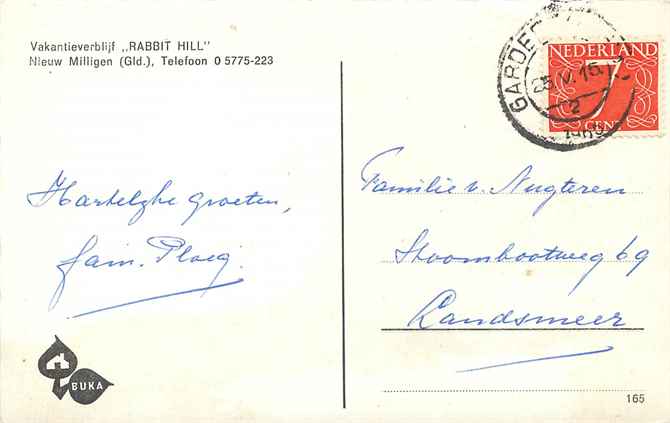 Vakantieverblijf „RABBIT HILL"
Nieuw Milligen (Gld.), Telefoon 0 5775-223
Hartelijke groeten,
fam. Ploeg.
BUKA
NEDERLAND
7
CENT
25.IV.15
2
Familie v. Nugteren
Stoombootweg 69
Landsmeer
165